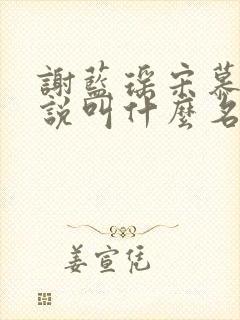 謝藍深宋慕
說叫什麼名
姜宣凭